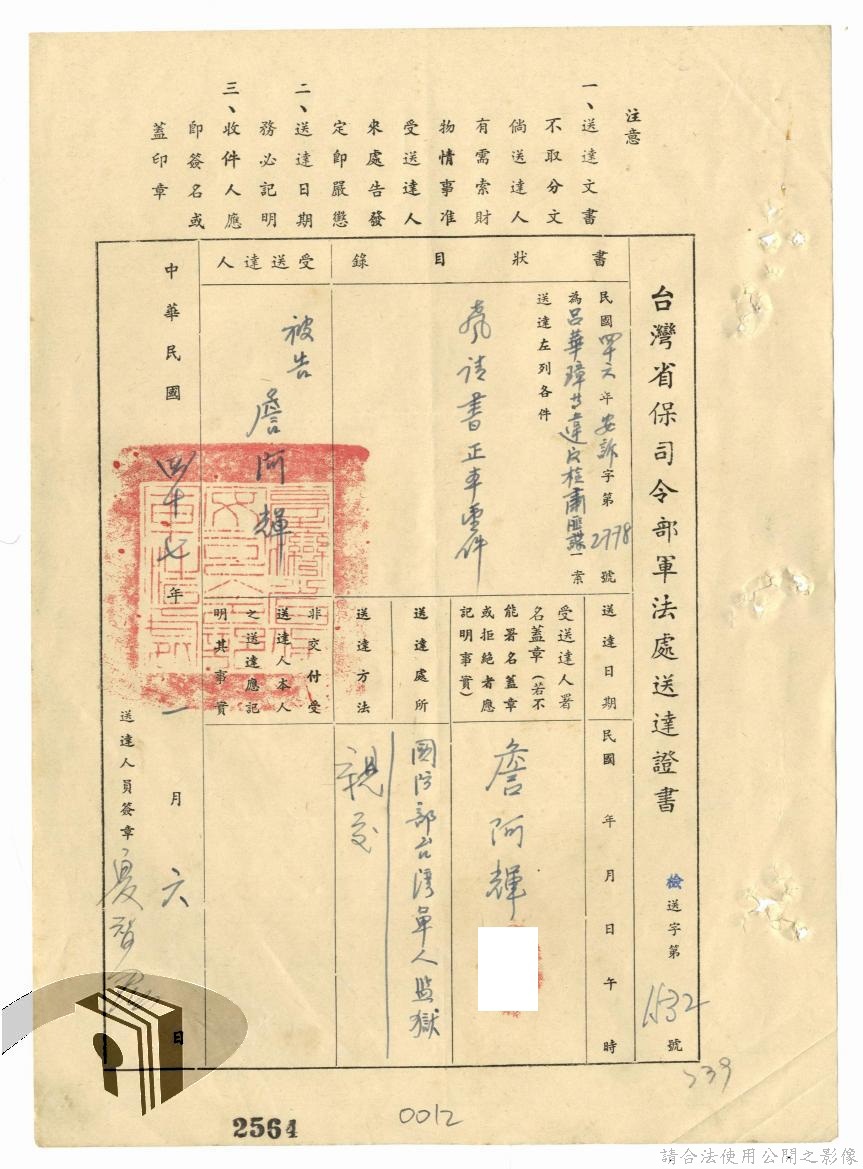 注意
一、送達文書
不取分文
倘送達人
有需索財
物情事准
受送達人
來處告發
定即嚴懲
二、送達日期
務必記明
三、收件人應
即簽名或
蓋印章
台灣省保司令部軍法處送達證書 檢送字第1532號
書狀目錄
民國四十六年安訴字第2778號
為呂華璋等違反檢肅匪諜一案
送達左列各件
聲請書正本壹件
受送達人
被告 詹阿輝
送達日期
民國 年 月 日 午 時
受送達人署
名蓋章(若不
能署名蓋章
或拒絕者應
記明事實)
詹阿輝
送達處所
國防部台灣軍人監獄
送達方法
親交
非交付受
送達人本人
之送達應記
明其事實
中華民國四十七年一月六日
送達人員簽章 夏
539
0012
2564
請合法使用公開之影像